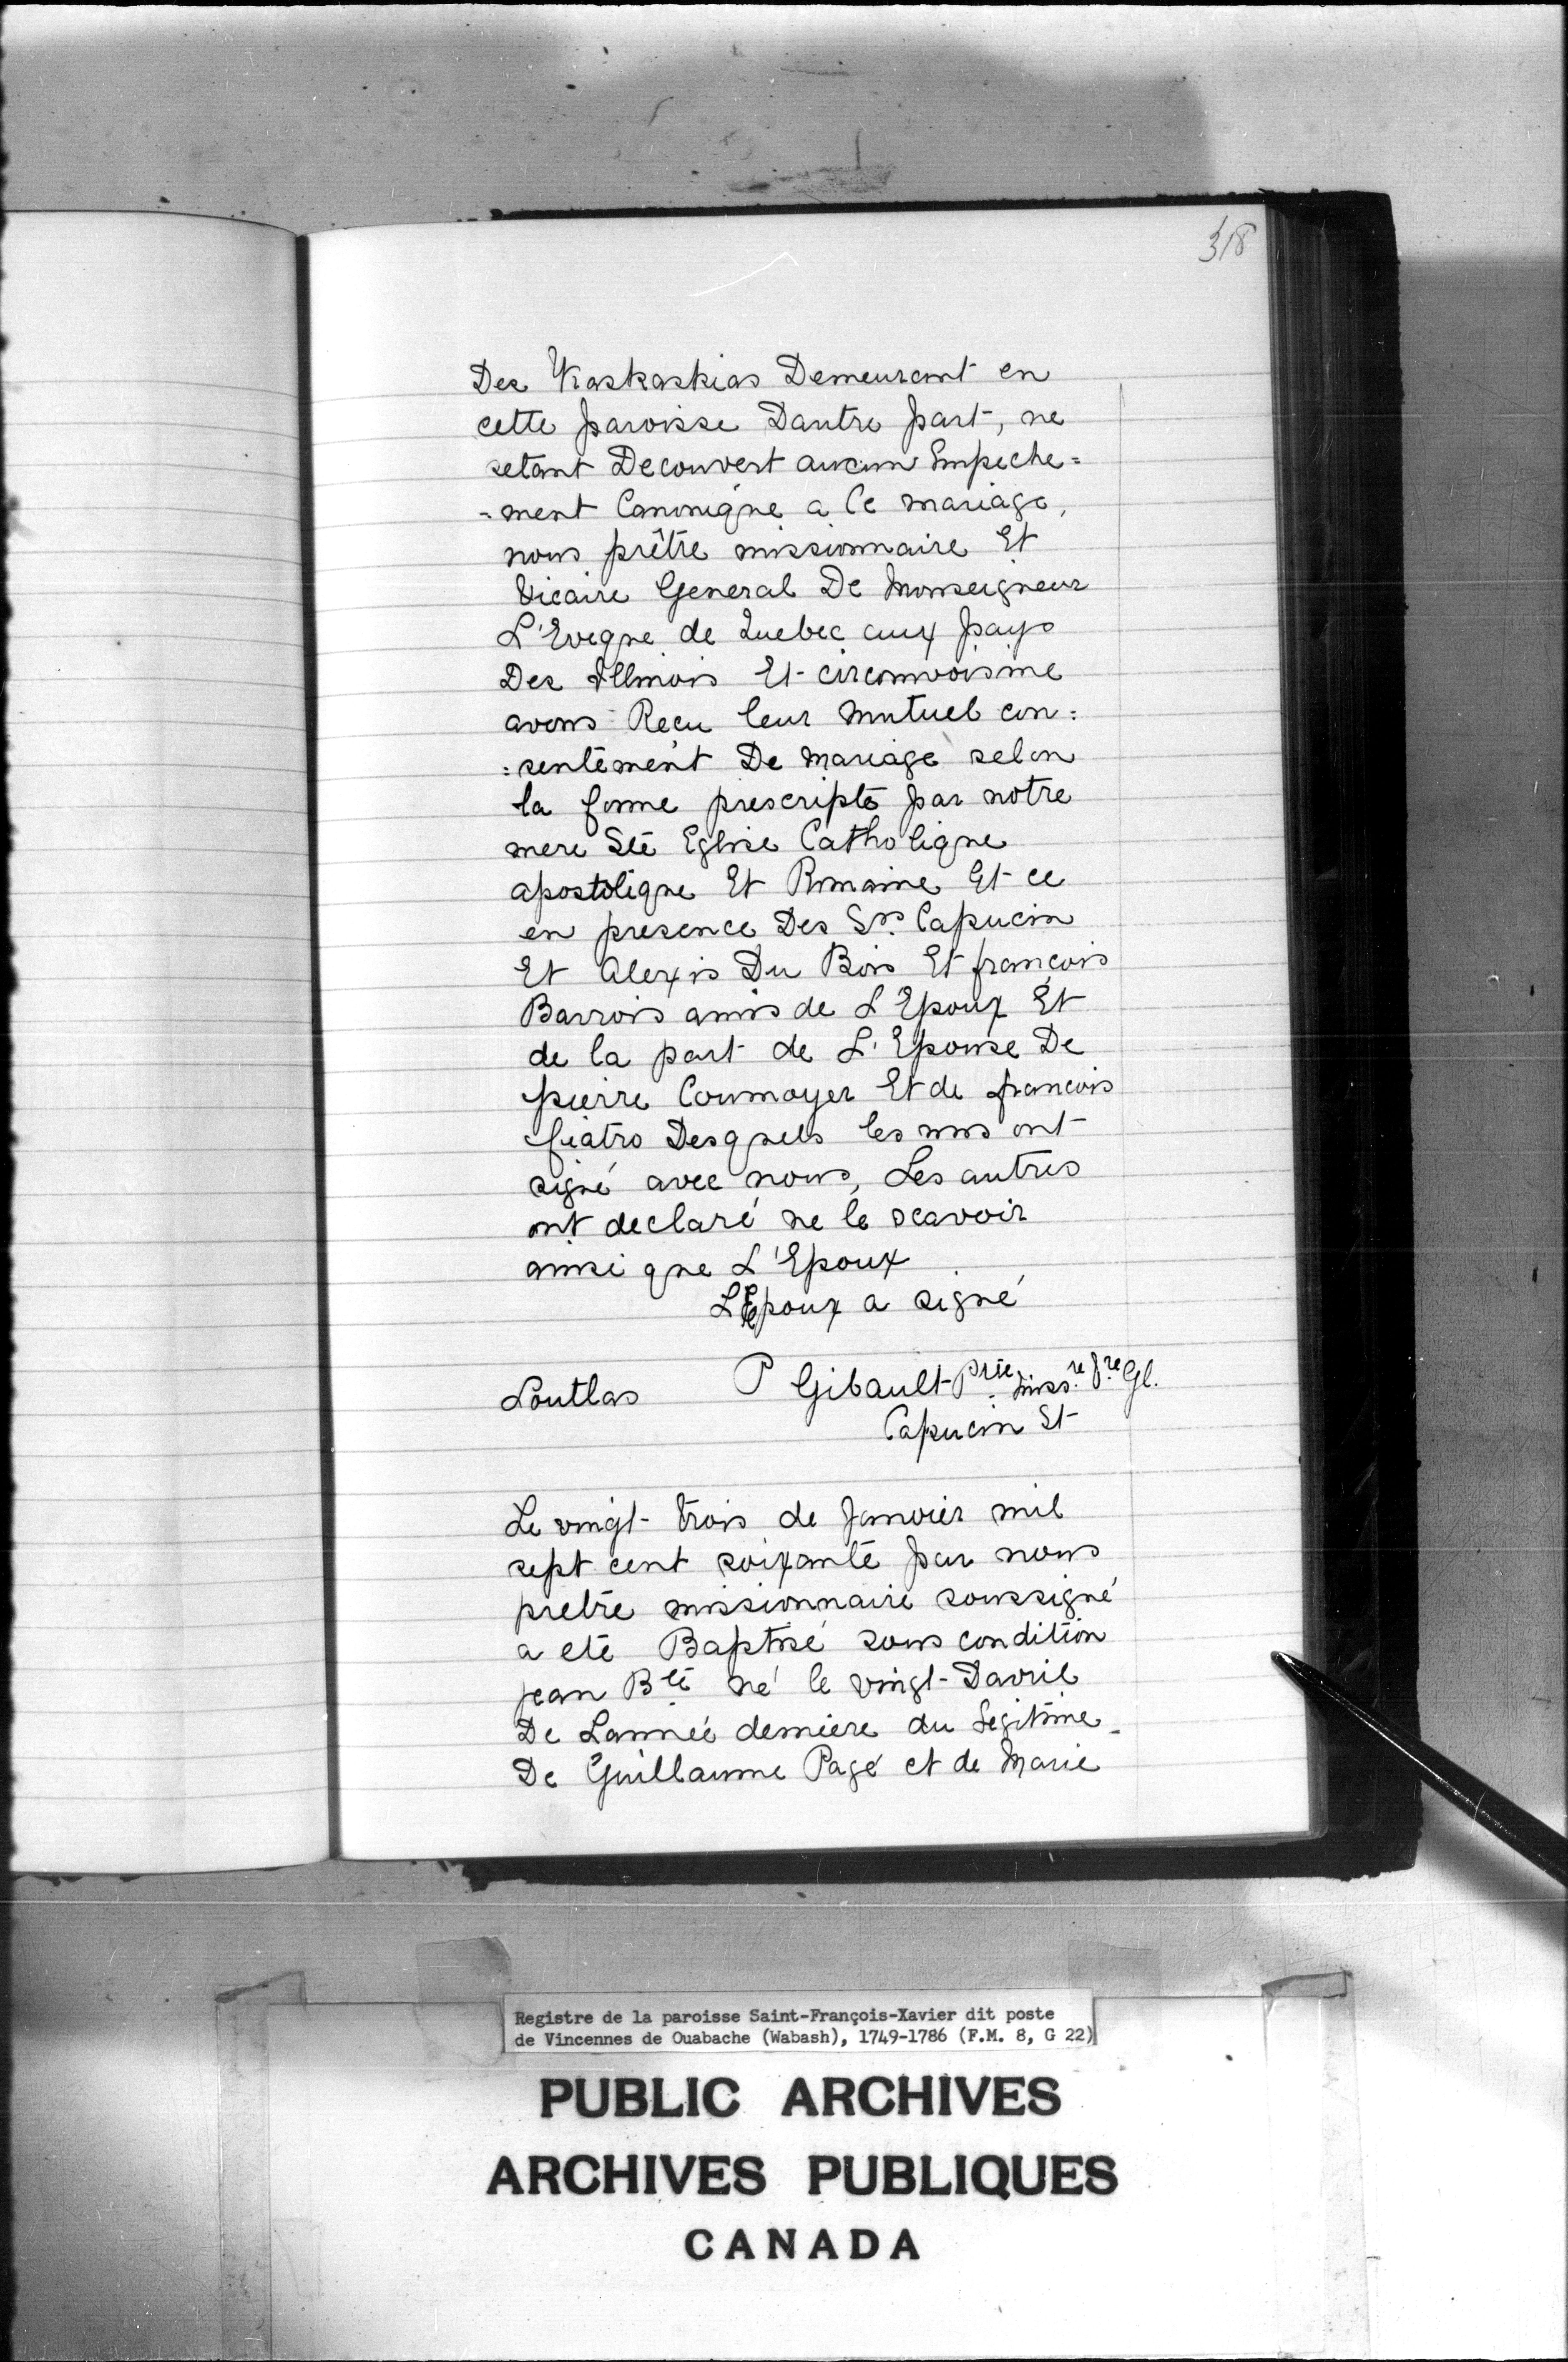 318
Des Kaskaskias Demeurant en
cette paroisse Dautre part, ne
setant Decouvert aucun Empeche=
=ment Canonique a Ce mariage,
nous prêtre missionnaire Et
Vicaire General De Monseigneur
L'Eveque de Quebec aux pays
Des Illinois Et circonvoisine
avons Recu leur mutuel con=
=sentement De mariage selon
la forme prescripte par notre
mere Ste Eglise Catholique
apostolique Et Romaine Et ce
en presence Des Srs. Capucin
Et Alexis Du Bois Et françois
Barrois amis de L'Epoux Et
de la part de L'Epouse De
pierre Cournoyer Et de francois
fiatro Desquels les uns ont
signé avec nous, Les autres
ont declaré ne le scavoir
ainsi que L'Epoux
L'Epoux a signé
P Gibault Ptre Miss.re Gl.
Loutlas
Capucin Et
Le vingt-trois de Janvier mil
sept cent soixante par nous
pretre missionnaire soussigné
a eté Baptisé sous condition
jean Bte né le vingt-Davril
De Lannée derniere du Legitime
De Guillaume Pagé et de Marie
Registre de la paroisse Saint-François-Xavier dit poste
de Vincennes de Ouabache (Wabash), 1749-1786 (F.M. 8, G 22)
PUBLIC ARCHIVES
ARCHIVES PUBLIQUES
CANADA